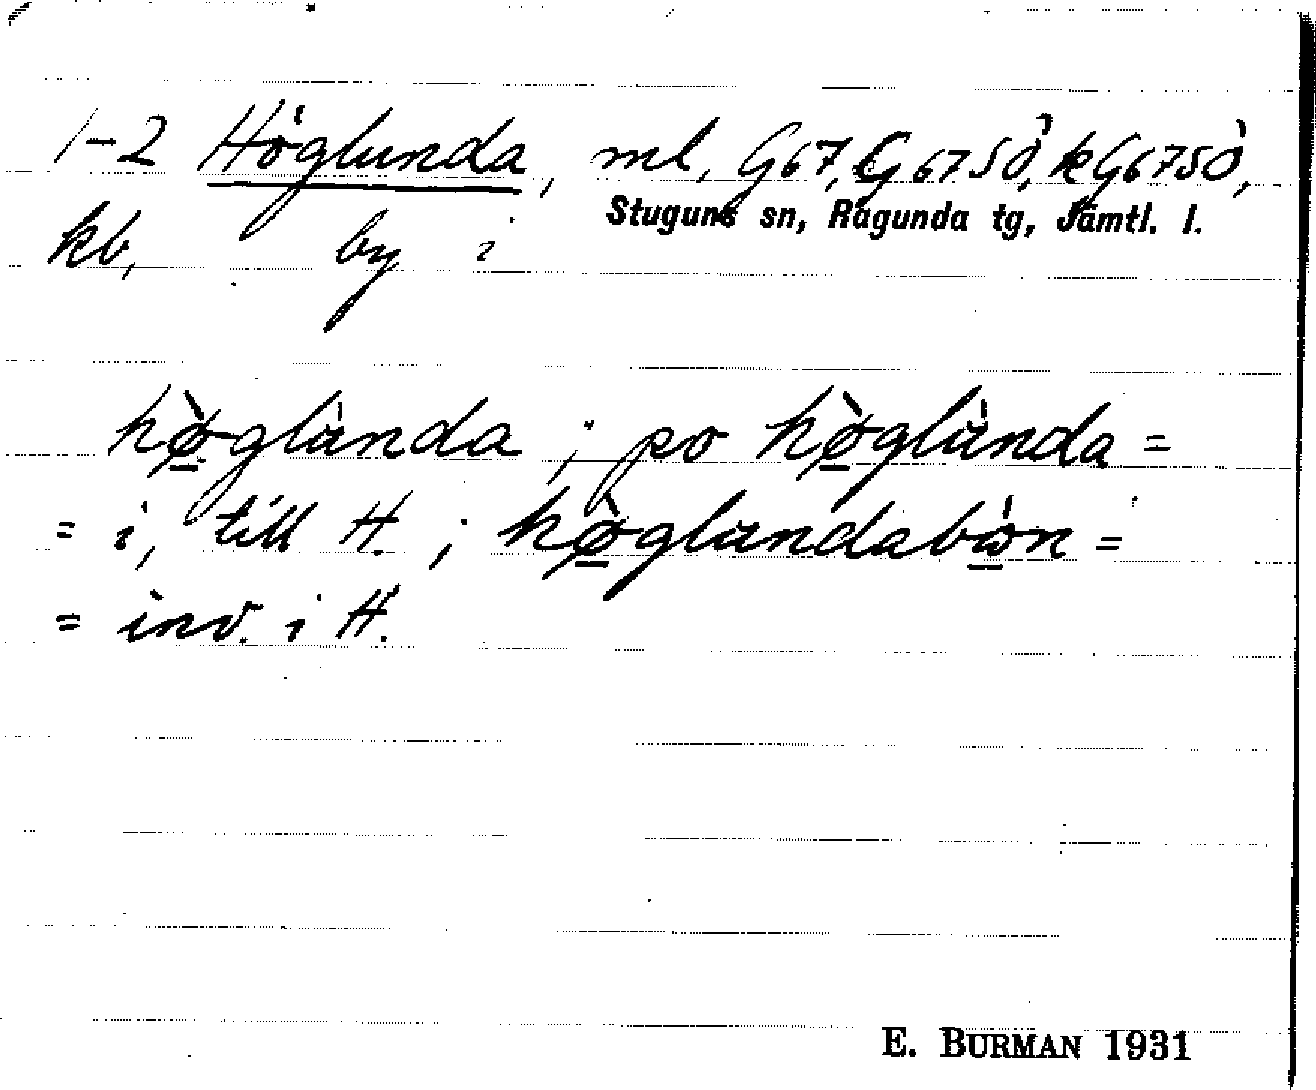 1-2 Höglunda, ml, G67, G67SÖ, kG67SÖ,
Stuguns sn, Ragunda tg, Jämtl. l.
kb, by i
hø̱̀glùnda ; po hø̱̀glùnda =
= i, till H. ; hø̱̀glundab
= inv. i H.
E. BURMAN 1931